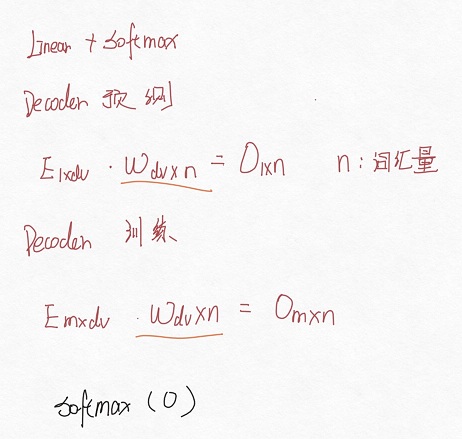 Linear + Softmax
Decoder 预测
E1×dv · Wdv×n = O1×n n:词汇量
Decoder 训练
Em×dv · Wdv×n = Om×n
softmax (O)